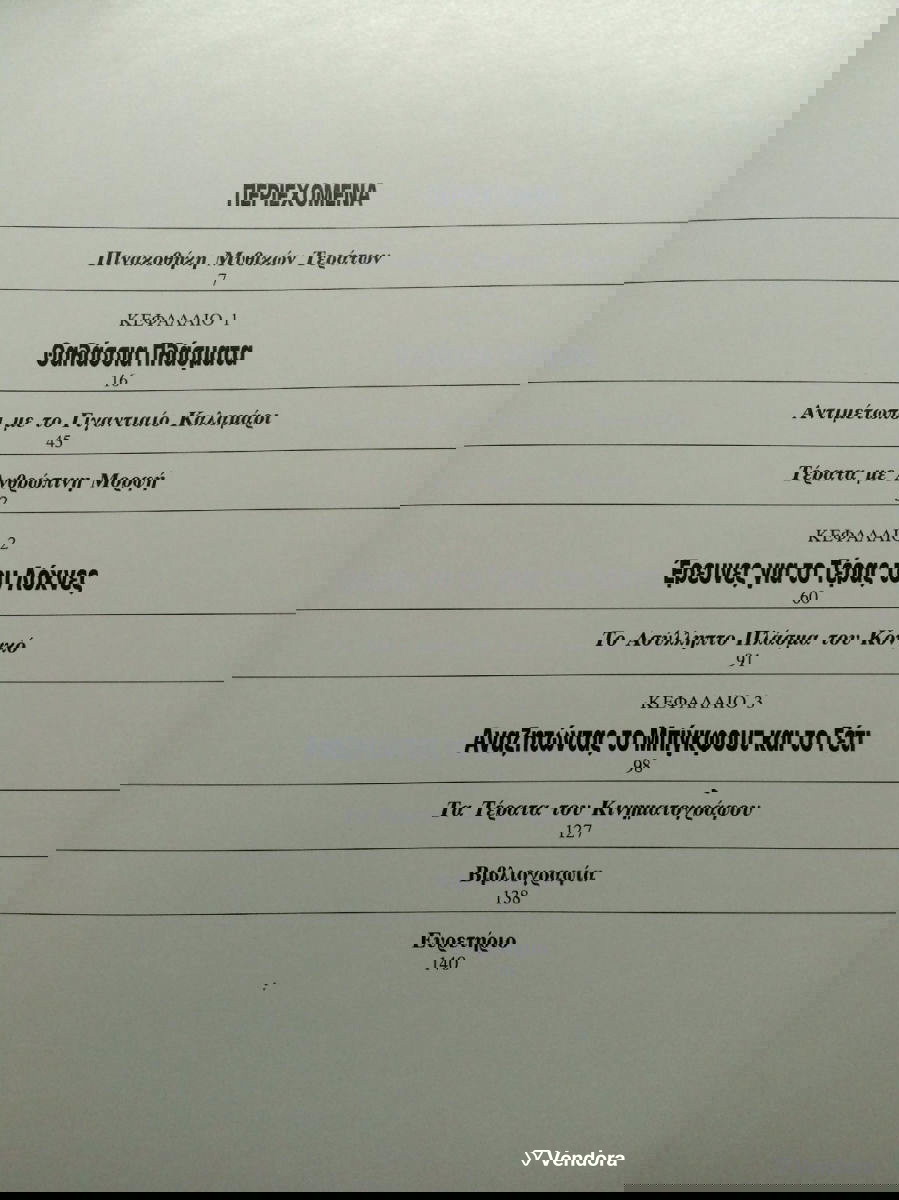 ΠΕΡΙΕΧΟΜΕΝΑ
Πινακοθήκη Μυθικών Τεράτων
7
ΚΕΦΑΛΑΙΟ 1
Θαλάσσια Πλάσματα
16
Αντιμέτωποι με το Γιγαντιαίο Καλαμάρι
45
Τέρατα με Ανθρώπινη Μορφή
ΚΕΦΑΛΑΙΟ 2
Έρευνες για το Τέρας του Λόχνες
60
Το Ασύλληπτο Πλάσμα του
91
ΚΕΦΑΛΑΙΟ 3
Αναζητώντας το Μπίγκφουτ και το Γέτι
98
Τα Τέρατα του Κινηματογράφου
127
Βιβλιογραφία
138
Ευρετήριο
140
Vendora